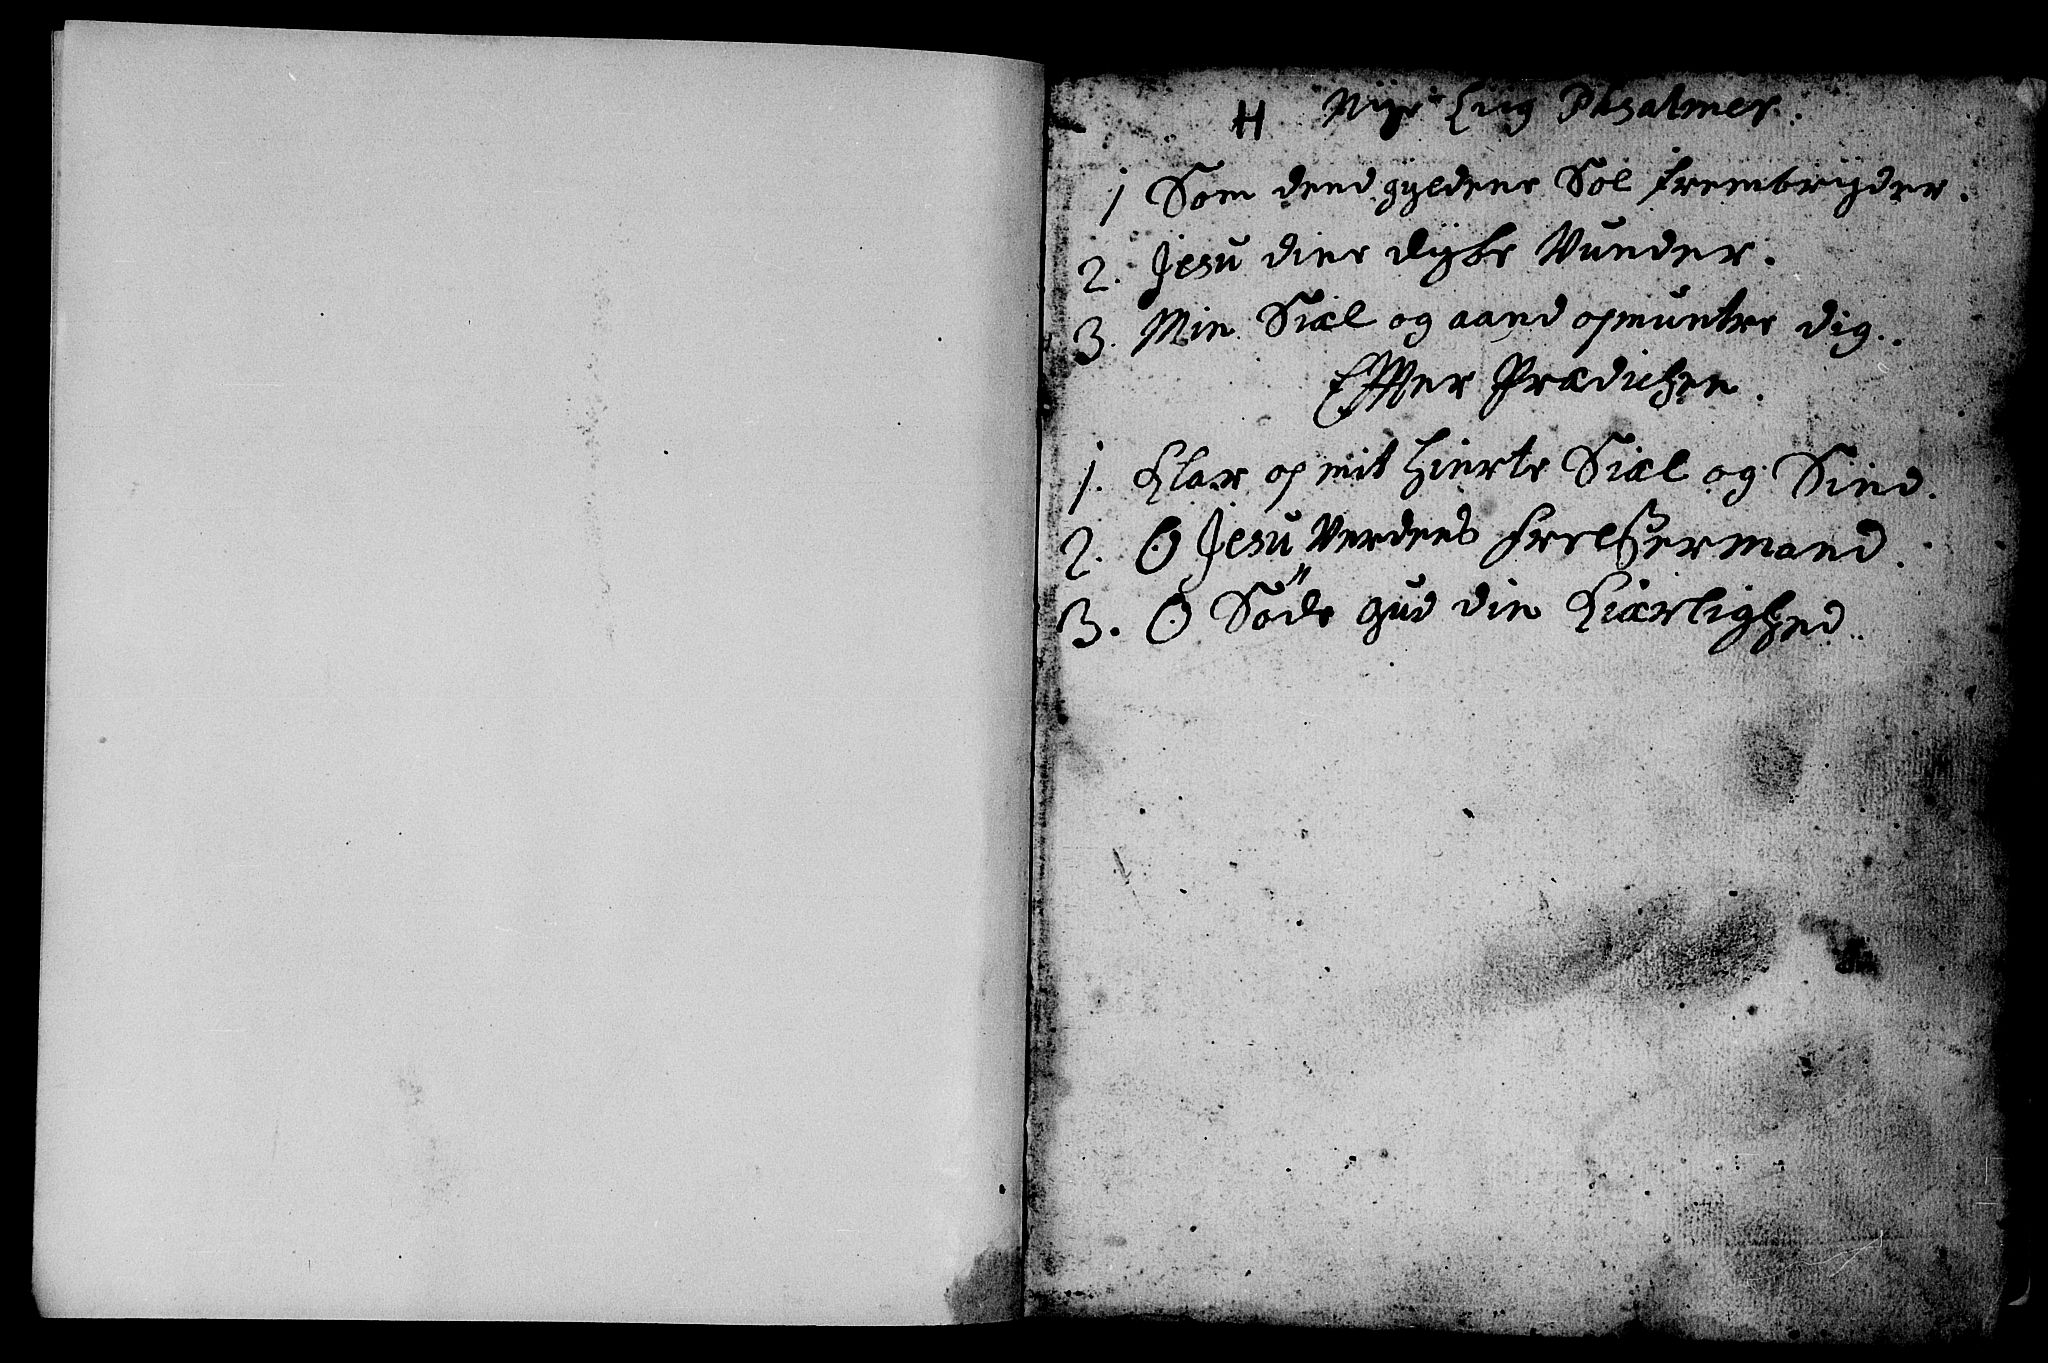 H Nÿe Liig Phsalmer.
1 Som dend gyldene Sol frembrÿder.
2. Jesu dine dÿbe Vunder.
3. Min Siæl og aand opmuntre dig.
Effter Prædichen.
1. Klar op mit hierte Siæl og Siind.
2. O Jesu Verdens frelßermand.
3. O Söde gud din Kiærlighed.